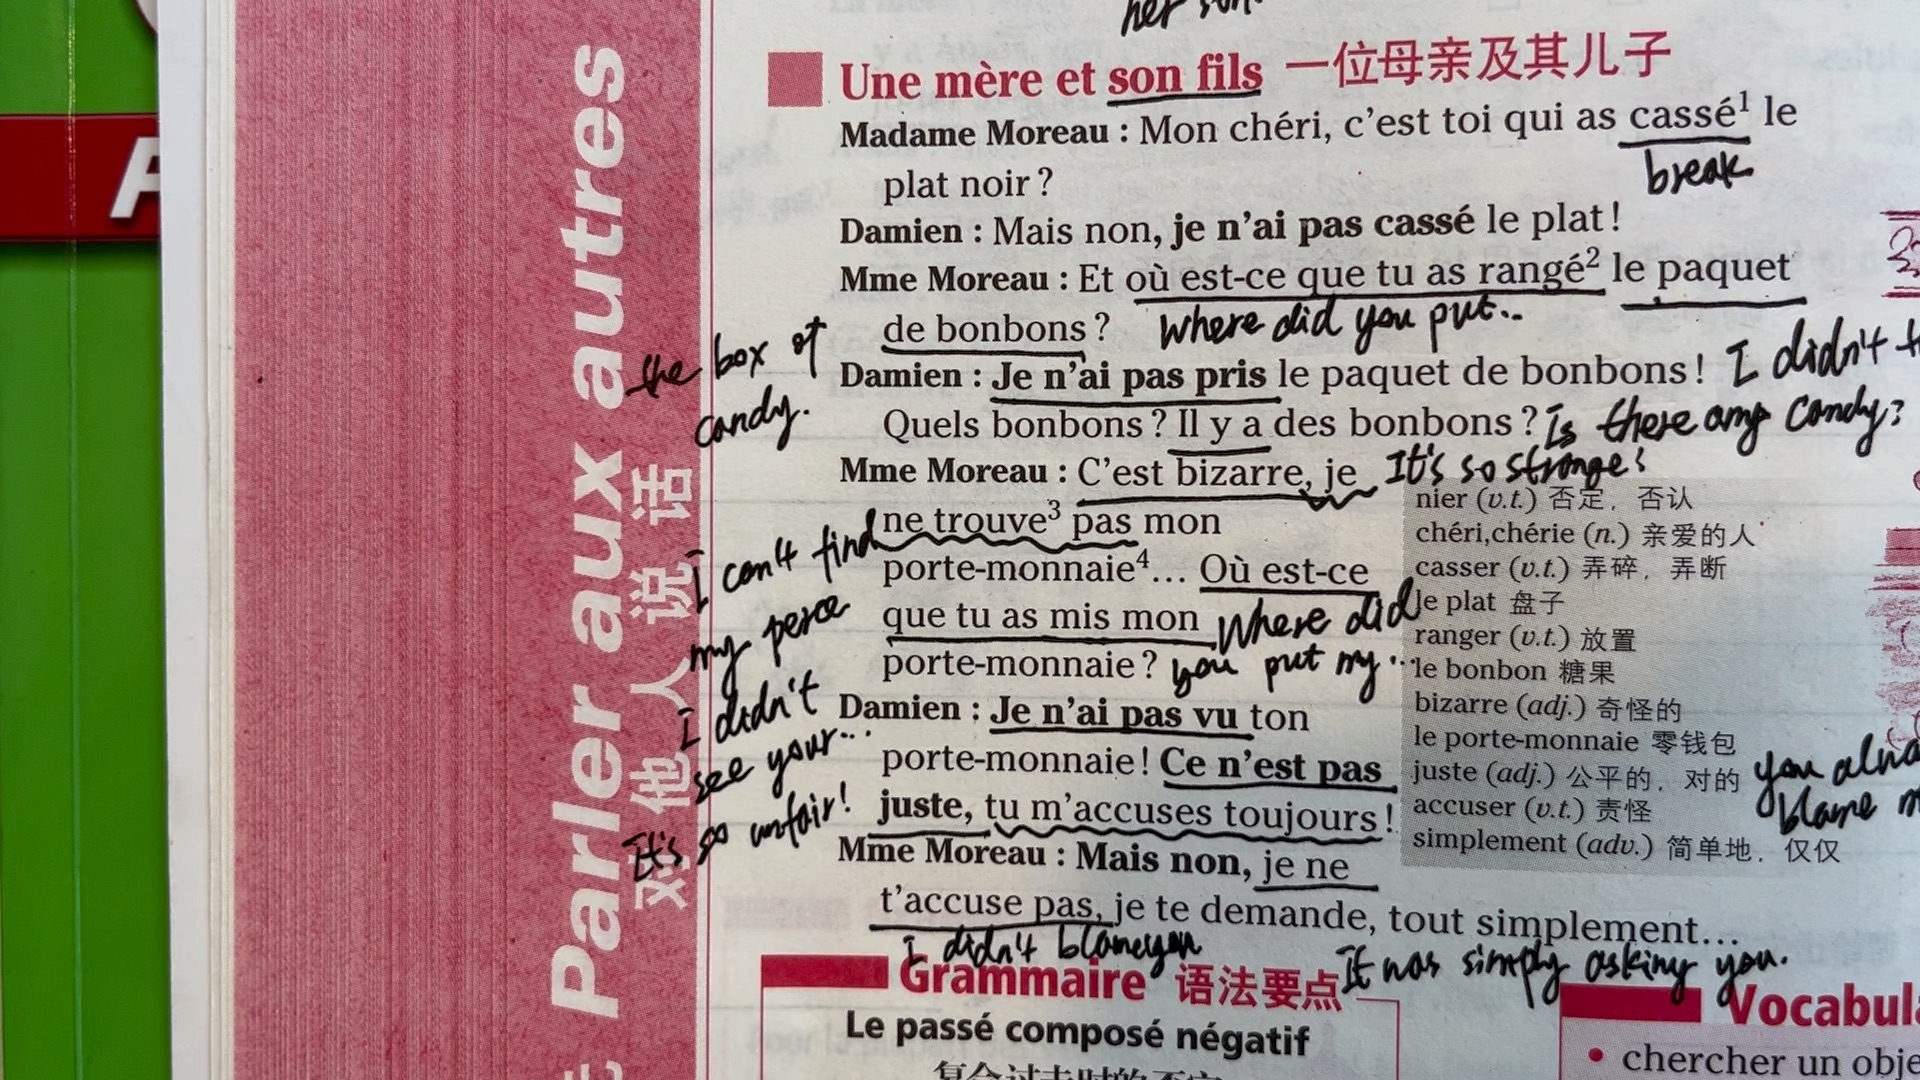 her son.
Une mère et son fils 一位母亲及其儿子
Madame Moreau : Mon chéri, c'est toi qui as cassé¹ le
plat noir ?
break
Damien : Mais non, je n'ai pas cassé le plat !
Mme Moreau : Et où est-ce que tu as rangé² le paquet
de bonbons ? Where did you put...
the box of
candy.
Damien : Je n'ai pas pris le paquet de bonbons ! I didn't
Quels bonbons ? Il y a des bonbons ? Is there any candy?
Mme Moreau : C'est bizarre, je It's so strange!
ne trouve³ pas mon
porte-monnaie⁴… Où est-ce
que tu as mis mon Where did
porte-monnaie ? you put my...
I can't find
my perce
Damien : Je n'ai pas vu ton
porte-monnaie ! Ce n'est pas
juste, tu m'accuses toujours !
I didn't
see your...
It's so unfair!
Mme Moreau : Mais non, je ne
t'accuse pas, je te demande, tout simplement…
I didn't blame you
It was simply asking you.
nier (v.t.) 否定，否认
chéri,chérie (n.) 亲爱的人
casser (v.t.) 弄碎，弄断
le plat 盘子
ranger (v.t.) 放置
le bonbon 糖果
bizarre (adj.) 奇怪的
le porte-monnaie 零钱包
juste (adj.) 公平的，对的
accuser (v.t.) 责怪
simplement (adv.) 简单地，仅仅
you
blame
Grammaire 语法要点
Le passé composé négatif
复合过去时的否定
Vocabul
• chercher un obje
Parler aux autres
对他人说话